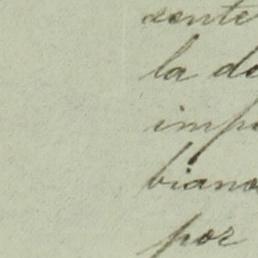 cente
la de
impo
biano
por